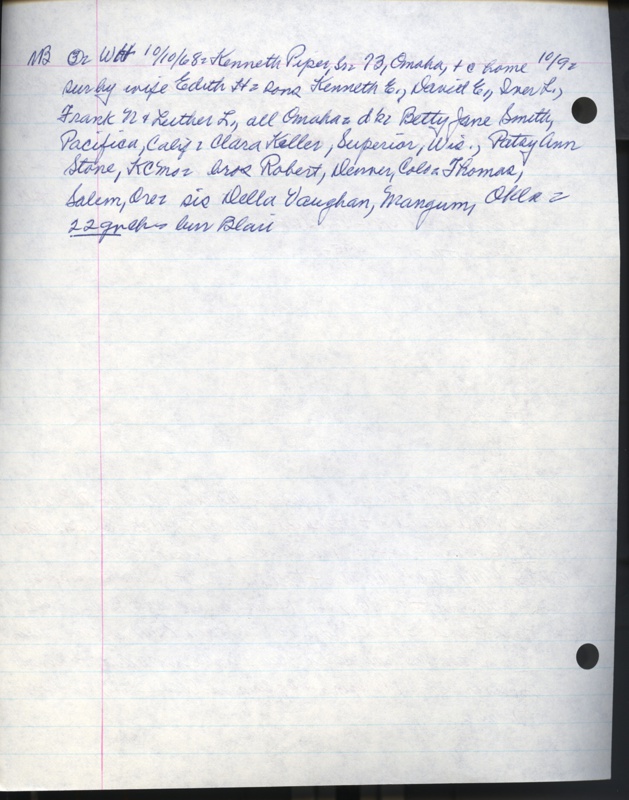 NB O= WH 10/10/68= Kenneth Piper, Sr 73, Omaha, + c home 10/9=
sur by wife Edith H= sons Kenneth E., David E., Iver L.,
Frank N & Luther L., all Omaha= d k= Betty Jane Smith,
Pacifica, Calif= Clara Keller, Superior, Wis., Patsy Ann
Stone, KCMo= bros Robert, Denver, Colo= Thomas,
Salem, Ore= sis Della Vaughan, Mangum, Okla=
22 grch= burr Blair